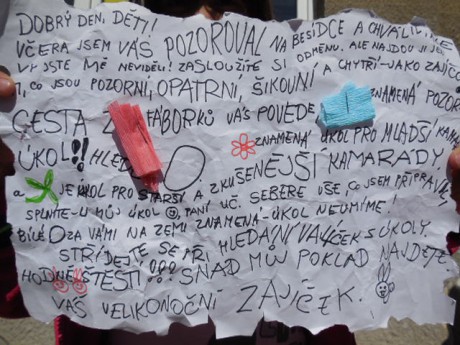 DOBRÝ DEN, DĚTI!
VČERA JSEM VÁS POZOROVAL NA BESÍDCE A CHVÁLIL
VY JSTE MĚ NEVIDĚLI! ZASLOUŽÍTE SI ODMĚNU. ALE NAJDOU JI JEN
TI, CO JSOU POZORNÍ, OPATRNÍ, ŠIKOVNÍ A CHYTŘÍ-JAKO ZAJÍC
CESTA Z FÁBORKŮ VÁS POVEDE ZNAMENÁ POZOR
ÚKOL!! HLED ZNAMENÁ ÚKOL PRO MLADŠÍ KAMA
A JE ÚKOL PRO STARŠÍ A ZKUŠENĚJŠÍ KAMARÁDY
SPLNÍTE-LI MŮJ ÚKOL, PANÍ UČ. SEBERE VŠE, CO JSEM PŘIPRAVIL
BÍLÉ O ZA VÁMI NA ZEMI ZNAMENÁ-ÚKOL NEUMÍME!
STŘÍDEJTE SE PŘI HLEDÁNÍ VAJÍČEK S ÚKOLY.
HODNĚ ŠTĚSTÍ!!! SNAD MŮJ POKLAD NAJDETE.
VÁŠ VELIKONOČNÍ ZAJÍČEK.